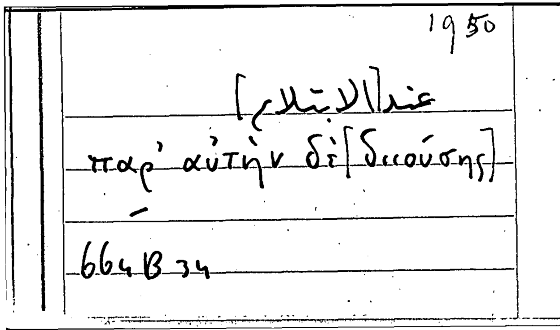 1950
عند [الابتلاع]
παρ' αὐτὴν δὲ [διιούσης]
—
664 B 34